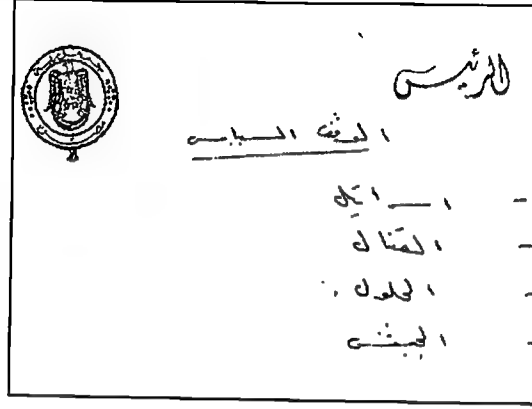 الرئيس
الوقت السياسي
- اسرائيل
- القتال
- الحلول
- الجيش